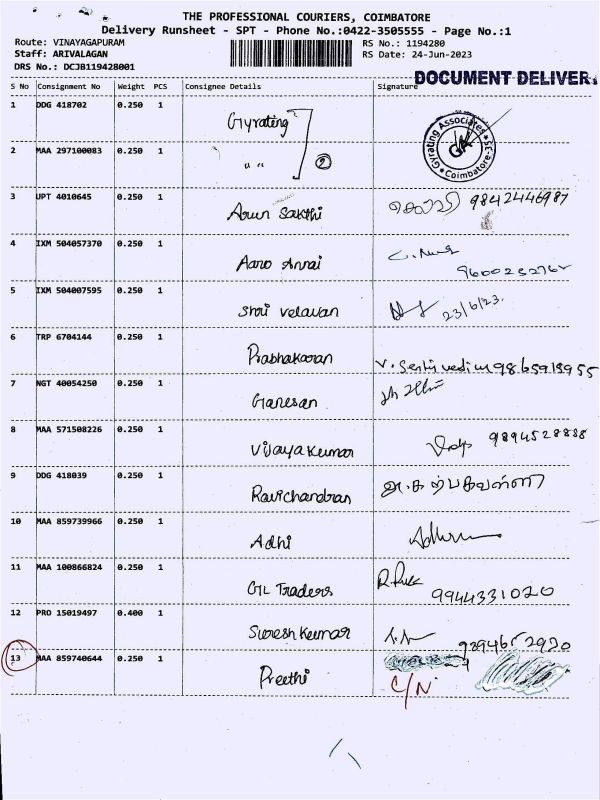 THE PROFESSIONAL COURIERS, COIMBATORE
Delivery Runsheet - SPT - Phone No.:0422-3505555 - Page No.:1
Route: VINAYAGAPURAM RS No.: 1194280
Staff: ARIVALAGAN RS Date: 24-Jun-2023
DRS No.: DCJB119428001 DOCUMENT DELIVER
S No Consignment No Weight PCS Consignee Details Signature
1 DDG 418702 0.250 1 Gyrating
Gyrating Associates Coimbatore-35
2 MAA 297100083 0.250 1 " " 2
3 UPT 4010645 0.250 1 Arun Sakthi 9842446987
4 IXM 504057370 0.250 1 Aaro Annai
5 IXM 504007595 0.250 1 Shri Velavan 23/6/23.
6 TRP 6704144 0.250 1 Prabhakaran 9865918955
7 NGT 40054250 0.250 1 Ganesan
8 MAA 571508226 0.250 1 Vijaya Kumar 9894528888
9 DDG 418039 0.250 1 Ravichandran அ.கற்பகவள்ளி
10 MAA 859739966 0.250 1 Adhi
11 MAA 100866824 0.250 1 GTL Traders 9944331020
12 PRO 15019497 0.400 1 Suresh Kumar
13 MAA 859740644 0.250 1 Preethi C/N